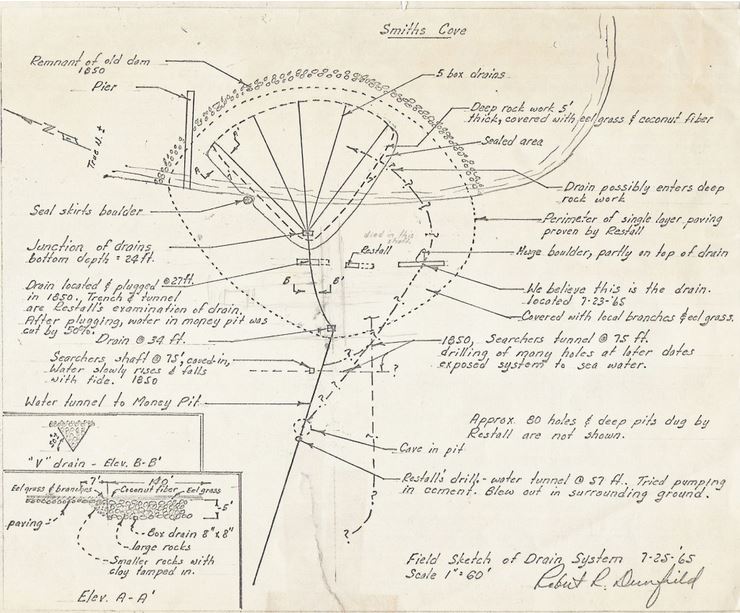 Smiths Cove
Remnant of old dam
1850
Pier
True N. ±
5 box drains
Deep rock work 5'
thick, covered with eel grass & coconut fiber
Sealed area
Drain possibly enters deep
rock work
Seal skirts boulder
Perimeter of single layer paving
proven by Restall
Junction of drains,
bottom depth = 24 ft.
died in this
shaft
Restall
Huge boulder, partly on top of drain
Drain located & plugged @ 27 ft.
in 1850. Trench & tunnel
are Restall's examination of drain.
After plugging, water in money pit was
cut by 50%.
B B'
We believe this is the drain.
located 7-23-'65
Covered with local branches & eel grass.
Drain @ 34 ft.
Searchers, shaft @ 75', caved-in,
Water slowly rises & falls
with tide. 1850
1850, Searchers tunnel @ 75 ft.
drilling of many holes at later dates
exposed system to sea water.
Water tunnel to Money Pit
Approx. 80 holes & deep pits dug by
Restall are not shown.
Cave in pit
Restall's drill - water tunnel @ 57 ft. Tried pumping
in cement. Blew out in surrounding ground.
"V" drain - Elev. B-B'
7' 140'
Eel grass & branches Coconut fiber Eel grass
5'
paving
Box drain 8" x 8"
large rocks
Smaller rocks with
clay tamped in.
Elev. A-A'
Field Sketch of Drain System 7-25-'65
Scale 1" = 60'
Robert R. Dunfield